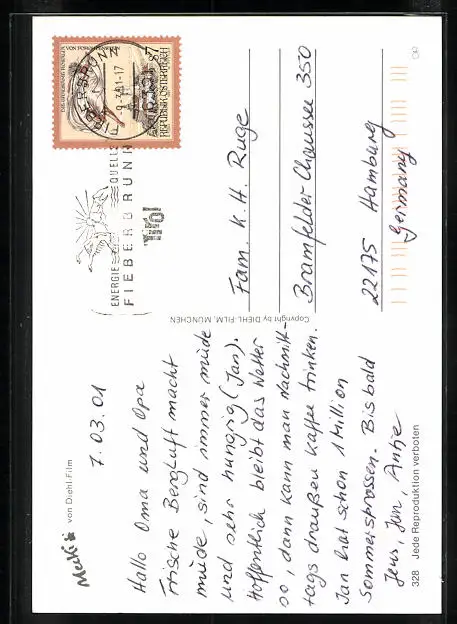 Mecki von Diehl-Film
7.03.01
Hallo Oma und Opa
frische Bergluft macht
müde, sind immer müde
und sehr hungrig (Jan).
Hoffentlich bleibt das Wetter
so, dann kann man Nachmit-
tags draußen Kaffee trinken.
Jan hat schon 1 Million
Sommersprossen. Bis bald
Jens, Jan, Antje
328 Jede Reproduktion verboten
Copyright by DIEHL-FILM, MÜNCHEN
REPUBLIK ÖSTERREICH
S7
FIEBERBRUNN
ENERGIE QUELLE
FIEBERBRUNN
TIROL
Fam. K. H. Ruge
Bramfelder Chaussee 350
22175 Hamburg
Germany